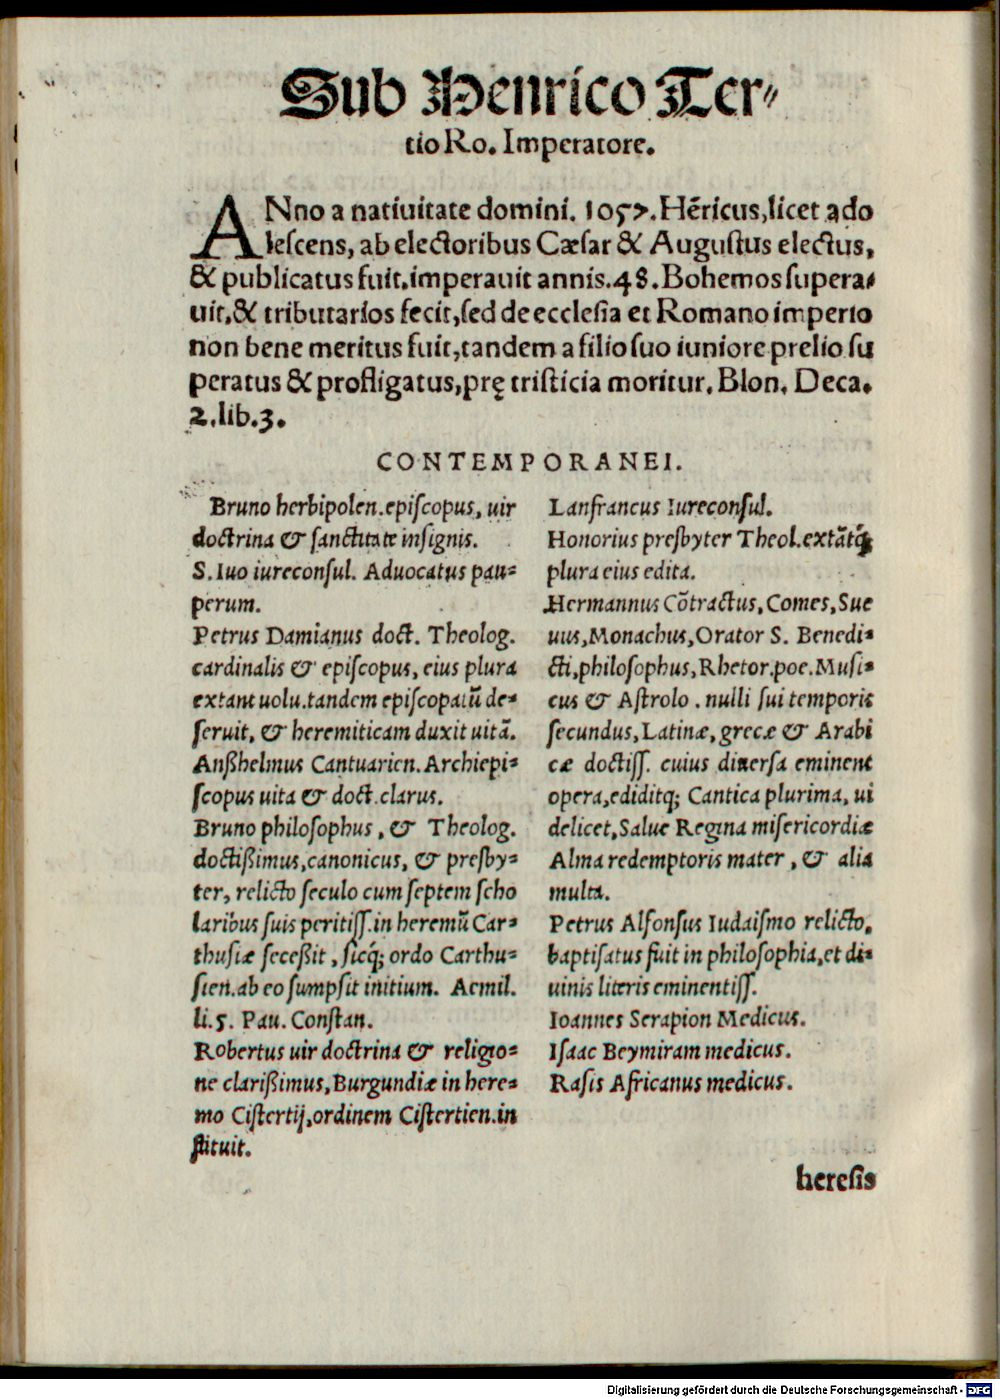 Sub Henrico Ter⸗
tio Ro. Imperatore.
ANno a natiuitate domini. 1057. Hēricus, licet ado
lescens, ab electoribus Cæsar & Augustus electus,
& publicatus fuit. imperauit annis. 48. Bohemos supera⸗
uit, & tributarios fecit, sed de ecclesia et Romano imperio
non bene meritus fuit, tandem a filio suo iuniore prelio su
peratus & profligatus, prę tristicia moritur. Blon. Deca.
2. lib. 3.
CONTEMPORANEI.
Bruno herbipolen. episcopus, uir
doctrina & sanctitate insignis.
S. Iuo iureconsul. Aduocatus pau⸗
perum.
Petrus Damianus doct. Theolog.
cardinalis & episcopus, eius plura
extant uolu. tandem episcopatū de⸗
seruit, & heremiticam duxit uitā.
Anßhelmus Cantuarien. Archiepi⸗
scopus uita & doct. clarus.
Bruno philosophus, & Theolog.
doctißimus, canonicus, & presby⸗
ter, relicto seculo cum septem scho
laribus suis peritiss. in heremū Car⸗
thusiæ seceßit, sicq; ordo Carthu⸗
sien. ab eo sumpsit initium. Aemil.
li. 5. Pau. Constan.
Robertus uir doctrina & religio⸗
ne clarißimus, Burgundiæ in here⸗
mo Cistertij, ordinem Cistertien. in
stituit.
Lanfrancus Iureconsul.
Honorius presbyter Theol. extātq;
plura eius edita.
Hermannus Cōtractus, Comes, Sue
uus, Monachus, Orator S. Benedi⸗
cti, philosophus, Rhetor. poe. Musi⸗
cus & Astrolo. nulli sui temporis
secundus, Latinæ, grecæ & Arabi
cæ doctiss. cuius diuersa eminent
opera, ediditq; Cantica plurima, ui
delicet, Salue Regina misericordiæ
Alma redemptoris mater, & alia
multa.
Petrus Alfonsus Iudaismo relicto,
baptisatus fuit in philosophia, et di⸗
uinis literis eminentiss.
Ioannes Serapion Medicus.
Isaac Beymiram medicus.
Rasis Africanus medicus.
heresis
Digitalisierung gefördert durch die Deutsche Forschungsgemeinschaft - DFG